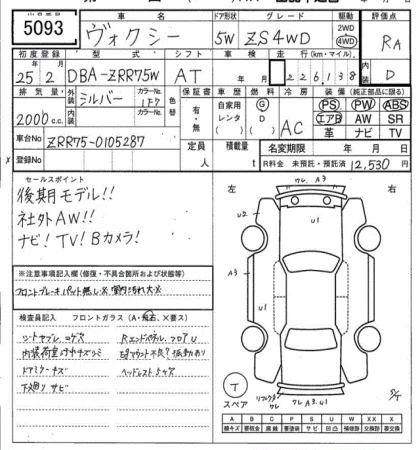 5093
車名
ヴォクシー
ドア形状
5W
グレード
ZS4WD
駆動
2WD
4WD
評価点
RA
初度登録
25年2月
型式
DBA-ZRR75W
シフト
AT
車検
年 月
走行(km・マイル)
226,138
内装
D
排気量
2000c.c.
外装
シルバー
カラーNo.
1F7
内装
カラーNo.
色替
保証書
有・無
車歴
自家用
レンタ
燃料
G
D
冷房
AC
装備(純正部品に限る)
PS PW ABS
エアB AW SR
革 ナビ TV
車台No
ZRR75-0105287
登録No
定員
人
積載量
t
名変期限 年 月 日
R料金 未預託・預託済 12,530円
セールスポイント
後期モデル!!
社外AW!!
ナビ!TV!Bカメラ!
※注意事項記入欄(修復・不具合箇所および状態等)
フロントブレーキパット無し※ 室内汚れ大※
検査員記入 フロントガラス(A・飛石、×要ス)
シートヤブレ、コゲ穴
内装荷室
ドアミラーキズ
下廻りサビ
Rエンドパネル、フロアU
振動あり
ヘッドレスト
左
右
A3
U2
U1
A3
U1
T
スペア
リフレクター
ワレ A3.U1
A B C P S U W XX X
線キズ 要板金 腐蝕 要塗装 サビ 凹凸 補修跡 交換跡 要交換